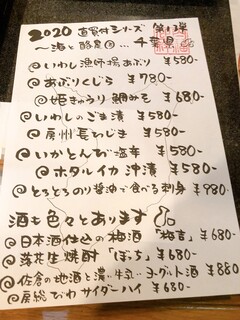 2020 直買付シリーズ 第13弾
〜海と酪農の… 千葉県
@いわし漁師揚あぶり ¥580-
@あぶりくじら ¥780-
@姫きゅうり 鯛みそ ¥680-
@いわしのごま漬 ¥580-
@房州長ひじき ¥580-
@いかとんび塩辛 ¥580-
@ホタルイカ 沖漬 ¥580-
@とろとろのり醤油で食べる刺身 ¥980-
酒も色々とあります
@日本酒仕込の梅酒「梅吉」¥680-
@落花生焼酎「ぼっち」¥680-
@佐倉の地酒と濃い牛乳…ヨーグルト酒 ¥880
@房総びわサイダーハイ ¥680-